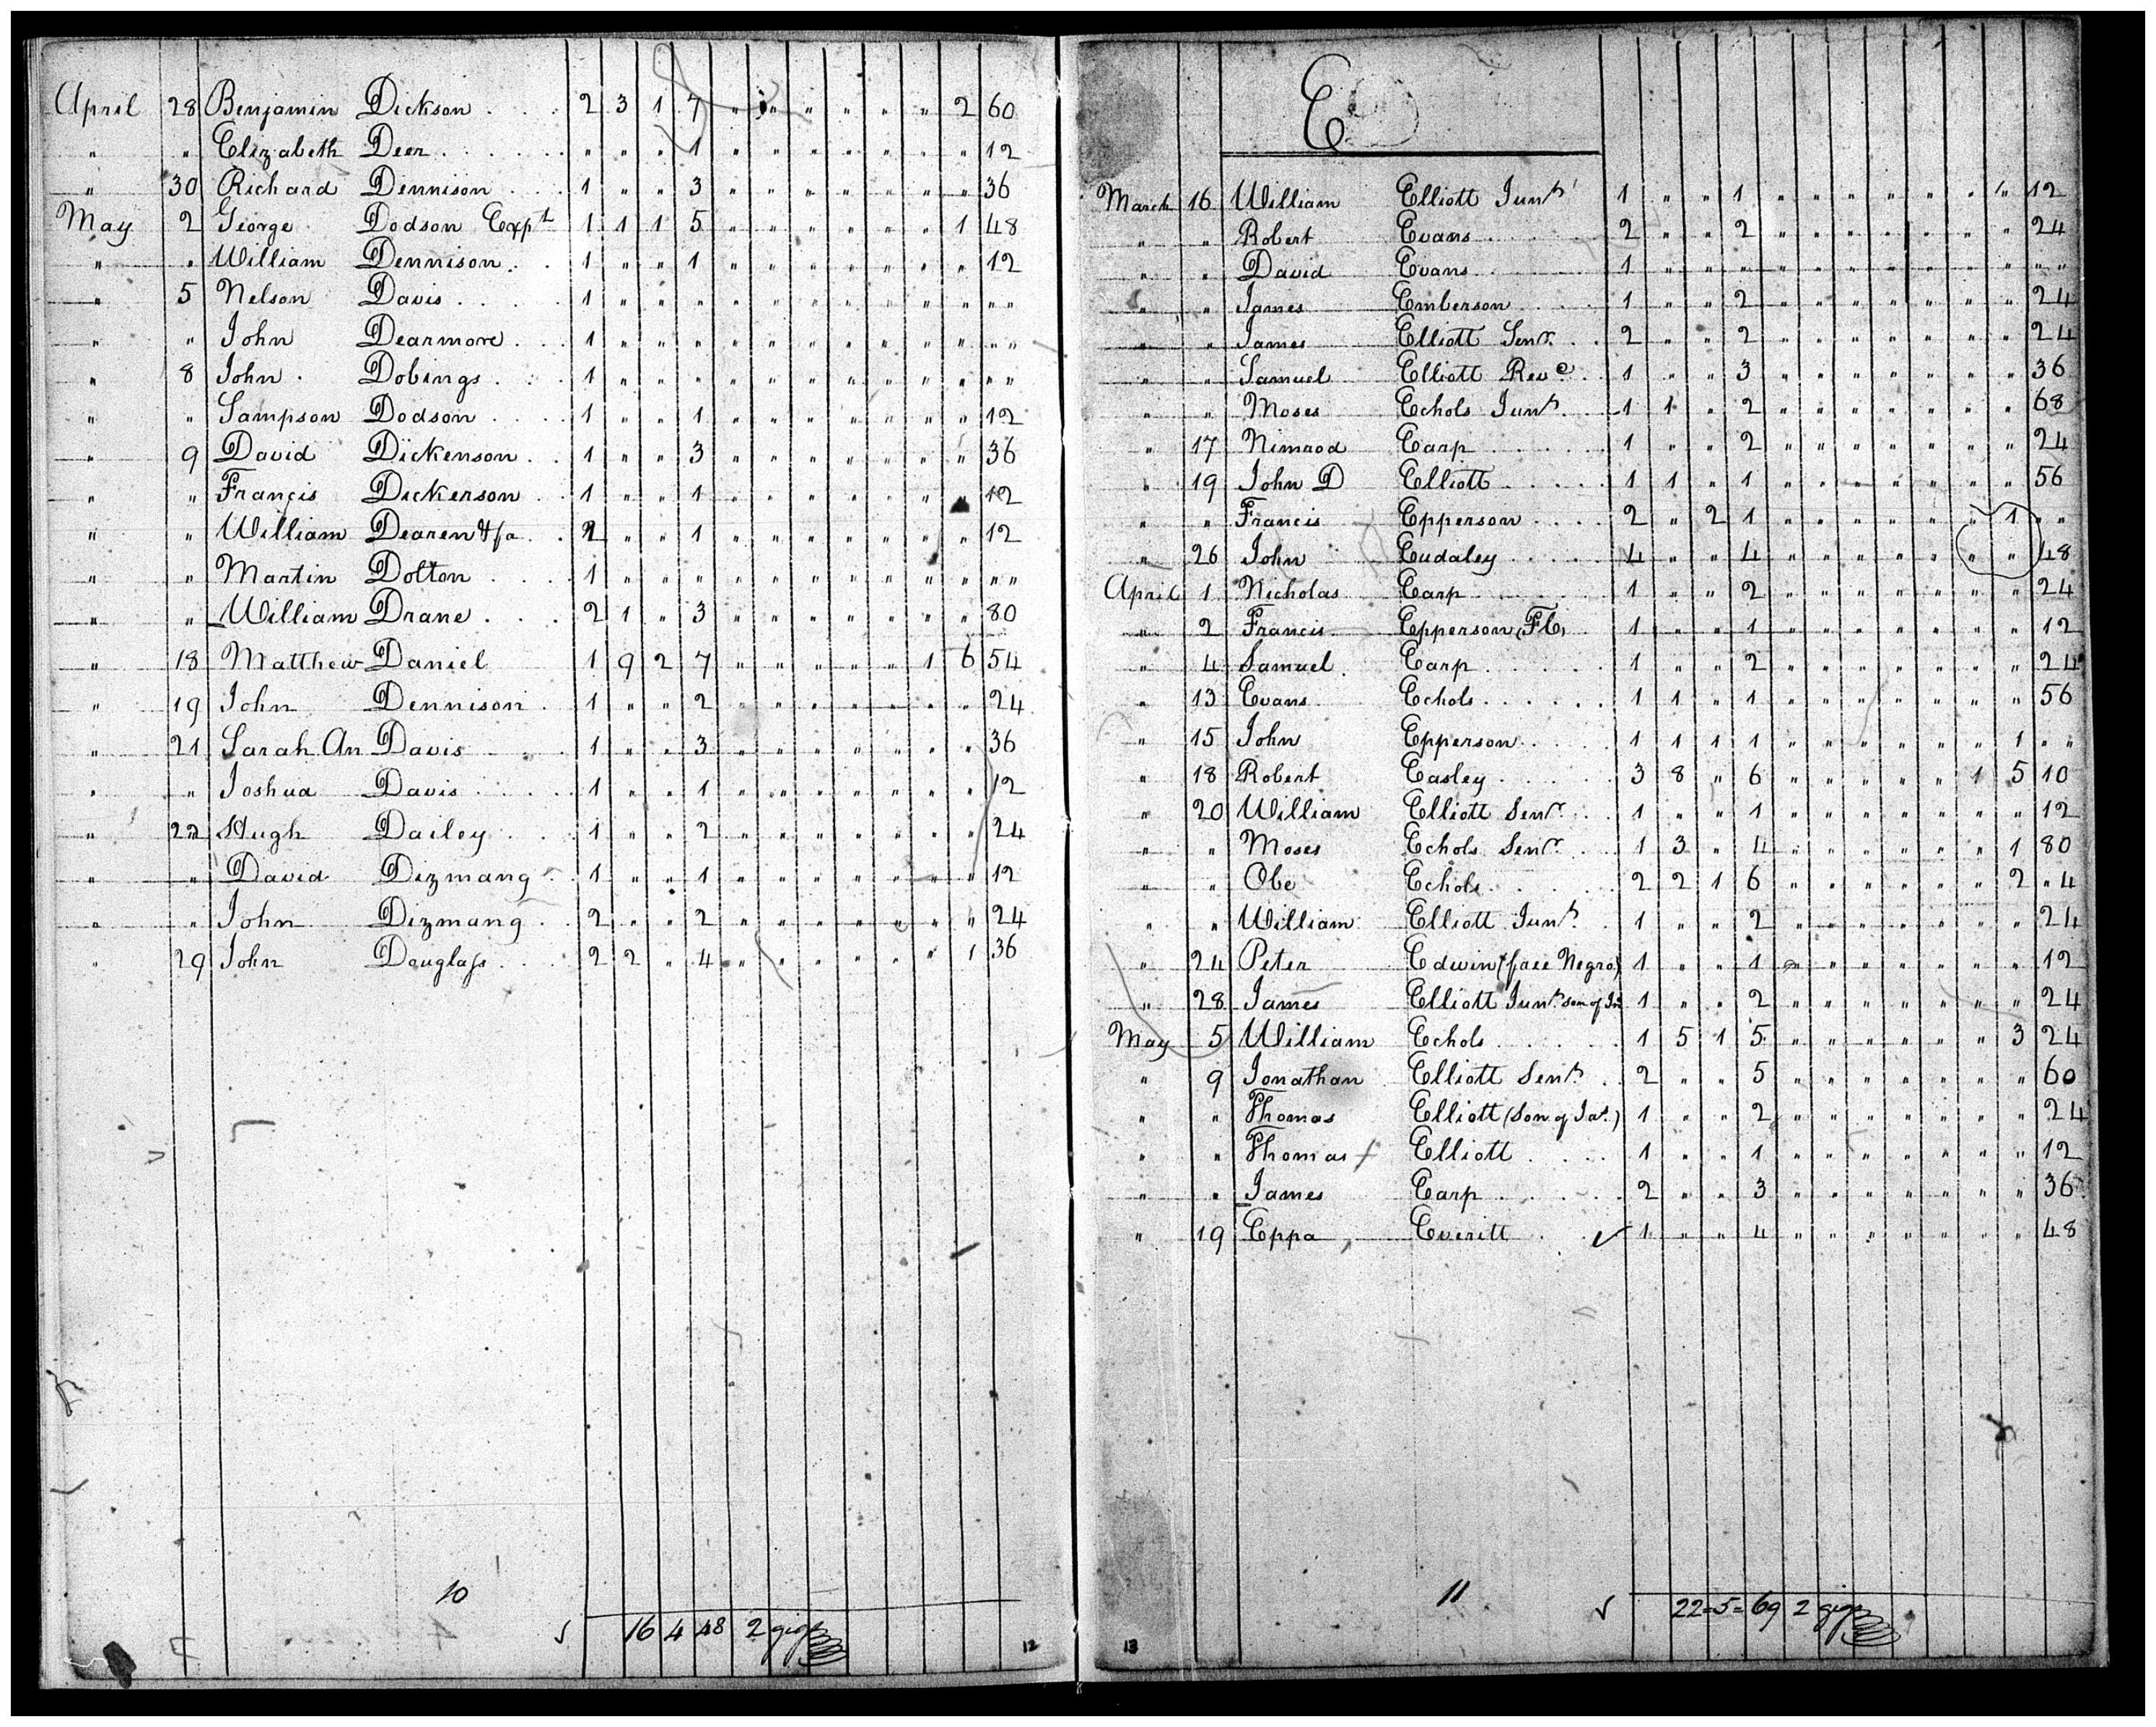 April 28 Benjamin Dickson . . . 2 3 1 7 " " " " " " 2 60
" " Elizabeth Deer . . . . " " " 1 " " " " " " " 12
" 30 Richard Dennison . . . 1 " " 3 " " " " " " " 36
May 2 George Dodson Expt 1 1 1 5 " " " " " " 1 48
" " William Dennison . . 1 " " 1 " " " " " " " 12
" 5 Nelson Davis . . . . 1 " " " " " " " " " " " "
" " John Dearmore . . . 1 " " " " " " " " " " " "
" 8 John . Dobings . . . 1 " " " " " " " " " " " "
" " Sampson Dodson . . . . 1 " " 1 " " " " " " " 12
" 9 David Dickenson . . 1 " " 3 " " " " " " " 36
" " Francis Dickerson . 1 " " 1 " " " " " " " 12
" " William Dearen . " " 1 " " " " " " " 12
" " Martin Dolton . . . 1 " " " " " " " " " " " "
" " William Drane . . . 2 1 " 3 " " " " " " " 80
" 18 Matthew Daniel 1 9 2 7 " " " " " 1 6 54
" 19 John Dennison . 1 " " 2 " " " " " " " 24
" 21 Sarah An Davis . . . 1 " " 3 " " " " " " " 36
" " Joshua Davis . . . . 1 " " 1 " " " " " " " 12
" 22 Hugh Dailey . . 1 " " 2 " " " " " " " 24
" " David Dizmang . 1 " " 1 " " " " " " " 12
" " John Dizmang . 2 " " 2 " " " " " " " 24
" 29 John Douglass . . . 2 2 " 4 " " " " " " 1 36
10
16 4 48 2 gigs
12
E
March 16 William Elliott Junr 1 " " 1 " " " " " " " 12
" " Robert Evans . . . . 2 " " 2 " " " " " " " 24
" " David Evans . . . . 1 " " " " " " " " " " " "
" " James Emberson . . . 1 " " 2 " " " " " " " 24
" " James Elliott Senr. . . 2 " " 2 " " " " " " " 24
" " Samuel Elliott Reve . . 1 " " 3 " " " " " " " 36
" " Moses Echols Junr. . . 1 1 " 2 " " " " " " " 68
" 17 Nimrod Earp . . . . . 1 " " 2 " " " " " " " 24
" 19 John D Elliott . . . . . 1 1 " 1 " " " " " " " 56
" " Francis Epperson . . . . 2 " 2 1 " " " " " " 1 " "
" 26 John Eudaley . . . . 4 " " 4 " " " " " " " 48
April 1 Nicholas Earp . . . . . 1 " " 2 " " " " " " " 24
" 2 Francis Epperson (Fb) 1 " " 1 " " " " " " " 12
" 4 Samuel Earp . . . . . 1 " " 2 " " " " " " " 24
" 13 Evans Echols . . . . . . 1 1 " 1 " " " " " " " 56
" 15 John Epperson . . . . 1 1 1 1 " " " " " " 1 " "
" 18 Robert Easley . . . . . 3 8 " 6 " " " " " 1 5 10
" 20 William Elliott Senr. . . 1 " " 1 " " " " " " " 12
" " Moses Echols Senr. . . 1 3 " 4 " " " " " " 1 80
" " Obe Echols . . . . . 2 2 1 6 " " " " " " 2 " 4
" " William Elliott Junr. . 1 " " 2 " " " " " " " 24
" 24 Peter Edwin (free Negro) 1 " " 1 " " " " " " " 12
" 28 James Elliott Junr. son of Js 1 " " 2 " " " " " " " 24
May 5 William Echols . . . . . 1 5 1 5 " " " " " " 3 24
" 9 Jonathan Elliott Senr. . 2 " " 5 " " " " " " " 60
" " Thomas Elliott (Son of Jas.) 1 " " 2 " " " " " " " 24
" " Thomas Elliott . . . . 1 " " 1 " " " " " " " 12
" " James Earp . . . . . 2 " " 3 " " " " " " " 36
" 19 Eppa Everitt . . ✓ 1 " " 4 " " " " " " " 48
11
22=5=69 2 gigs
13